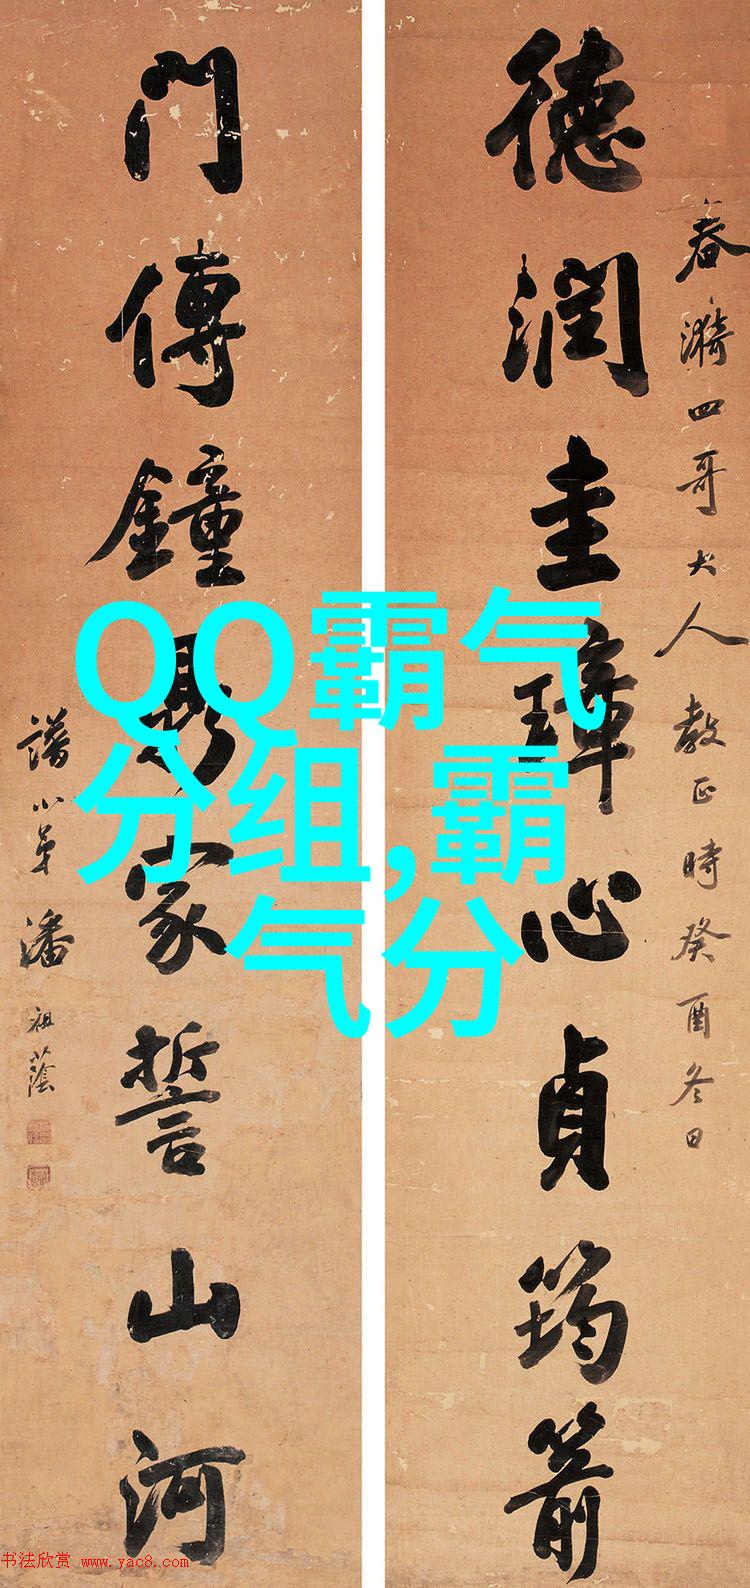 春漪四哥大人教正時癸酉冬日
德潤圭璋心貞筠箭
門傳鐘鼎家誓山河
譜小弟潘祖蔭
QQ霸气
分组,霸
气分
书法欣赏 www.yac8.com